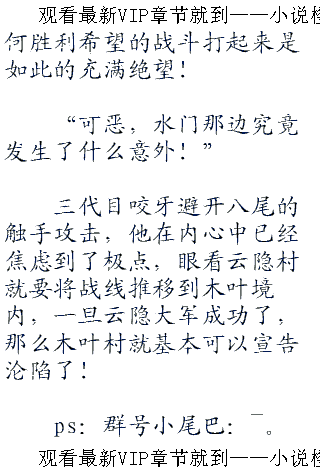 观看最新VIP章节就到——小说
何胜利希望的战斗打起来是
如此的充满绝望！
“可恶，水门那边究竟
发生了什么意外！”
三代目咬牙避开八尾的
触手攻击，他在内心中已经
焦虑到了极点，眼看云隐村
就要将战线推移到木叶境
内，一旦云隐大军成功了，
那么木叶村就基本可以宣告
沦陷了！
ps：群号小尾巴：¯。
观看最新VIP章节就到——小说